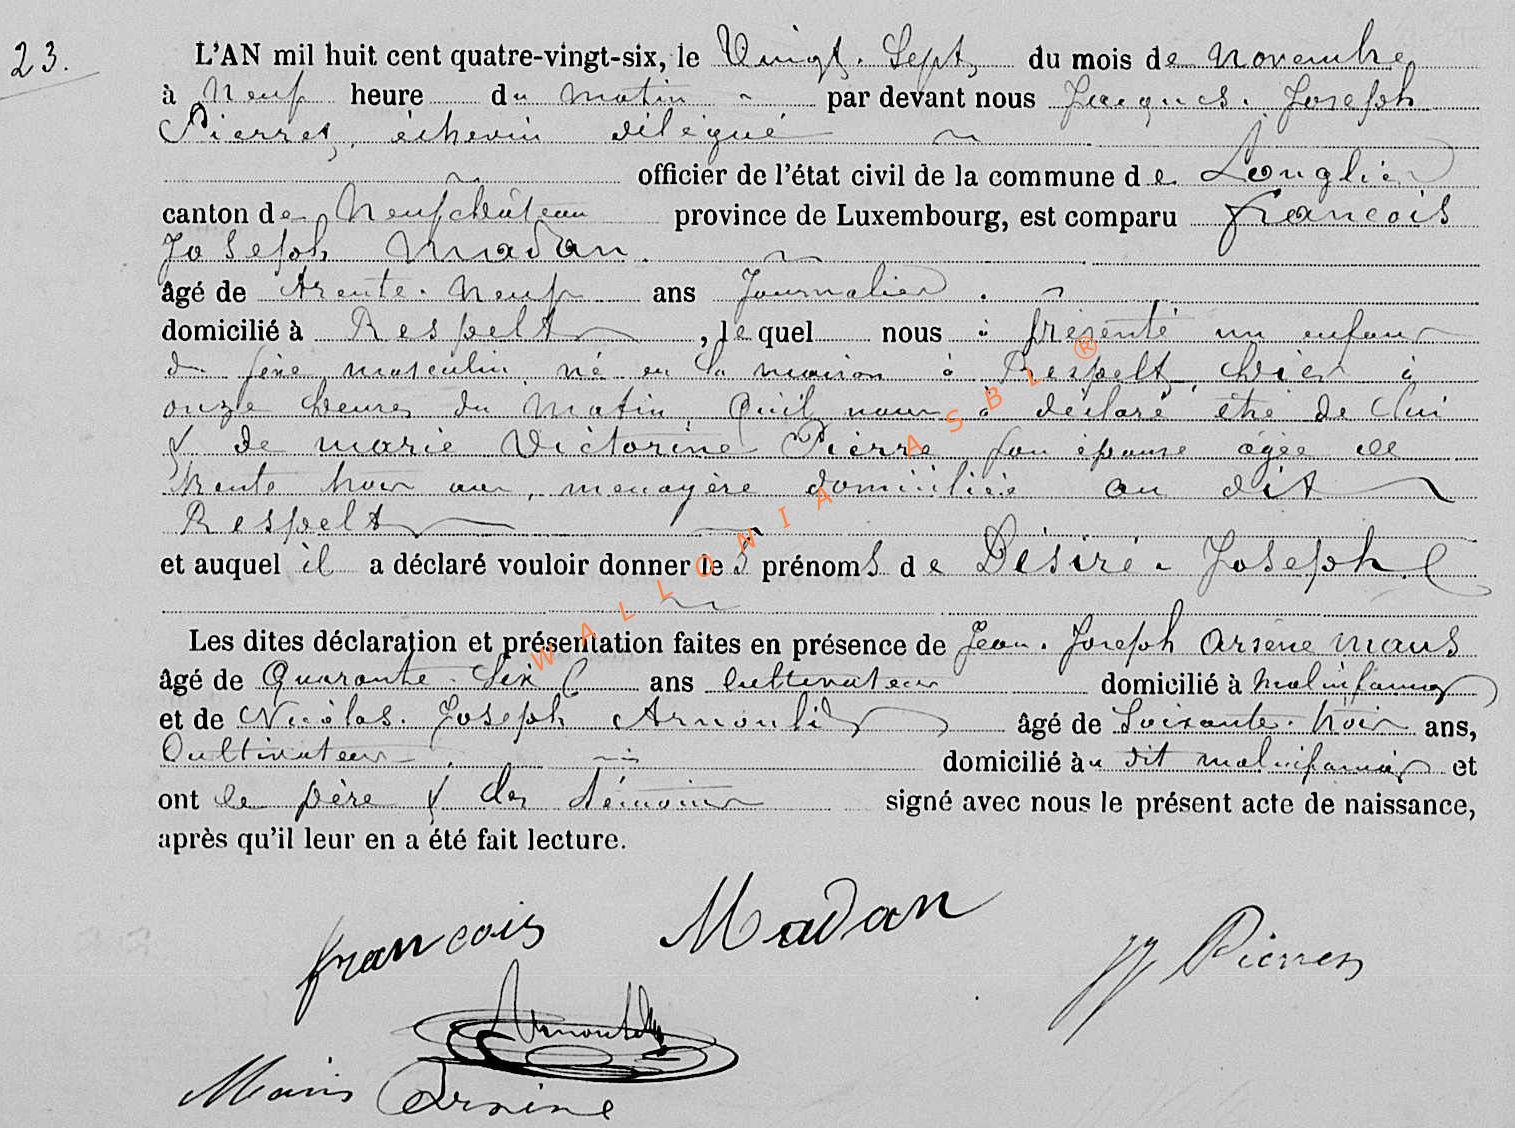 23.
L'AN mil huit cent quatre-vingt-six, le Vingt. Sept, du mois de novembre,
à Neuf heure du matin par devant nous Jacques. Joseph
Pierret, échevin délégué
officier de l'état civil de la commune de Longlier
canton de Neufchâteau province de Luxembourg, est comparu françois
Joseph Madan.
âgé de trente. Neuf ans Journalier.
domicilié à Respelt, lequel nous à présenté un enfant
du sexe masculin, né en sa maison à Respelt, hier à
onze heures du matin, qu'il nous à déclaré être de lui
& de marie Victorine Pierre son épouse agée de
trente trois ans, menagère domiciliée au dit
Respelt
et auquel il a déclaré vouloir donner les prénoms de Désiré. Joseph
Les dites déclaration et présentation faites en présence de Jean. Joseph Arsène Maus
âgé de Quarante. Six ans Cultivateur domicilié à Molinfaing
et de Nicolas. Joseph Arnould âgé de Soixante. trois ans,
Cultivateur domicilié au dit molinfaing et
ont le père & les témoins signé avec nous le présent acte de naissance,
après qu'il leur en a été fait lecture.
françois Madan
JJ Pierret
Arnould
WALLONIA ASBL ®